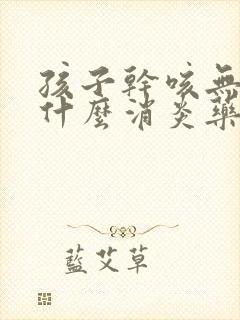 孩子幹咳無
什麼消炎藥
藍艾草